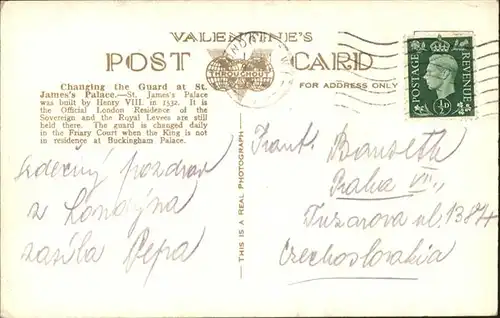 VALENTINE'S
POST CARD
THROUGHOUT
FOR ADDRESS ONLY
Changing the Guard at St.
James's Palace.—St. James's Palace
was built by Henry VIII. in 1532. It is
the Official London Residence of the
Sovereign and the Royal Levees are still
held there. The guard is changed daily
in the Friary Court when the King is not
in residence at Buckingham Palace.
Srdečný pozdrav
z Londýna
zasílá Pepa
THIS IS A REAL PHOTOGRAPH
POSTAGE
REVENUE
½D
Frant.
Praha VII.,
ul. 1384
Czechoslovakia